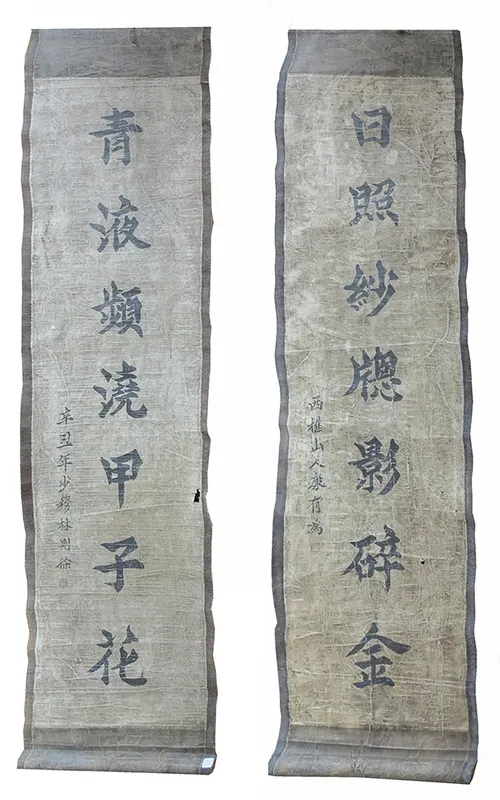 日照紗牕影碎金
西樵山人康有為
青液頻澆甲子花
辛丑年少穆林則徐